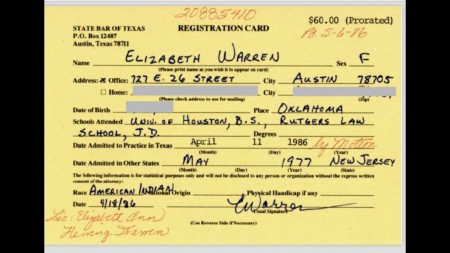 20885410
$60.00 (Prorated)
STATE BAR OF TEXAS
REGISTRATION CARD
P.O. Box 12487
Austin, Texas 78711
Pd. 5-6-86
Name ELIZABETH WARREN Sex F
(Please print name as you wish it to appear on card)
Address: Office: 727 E. 26 STREET City AUSTIN 78705
(Zip)
Home: City
(Please check address to use for mailing) (Zip)
Date of Birth Place OKLAHOMA
Schools Attended UNIV. OF HOUSTON, B.S., RUTGERS LAW
SCHOOL, J.D. Degrees
Date Admitted to Practice in Texas April 11 1986 by Motion
(Month) (Day) (Year)
Date Admitted in Other States MAY 1977 NEW JERSEY
(Month) (Day) (Year) (State)
The following information is for statistical purposes only and will not be disclosed to any person or organization without the express written
consent of the attorney.
Race AMERICAN INDIAN National Origin Physical Handicap if any
Date 4/18/86 EWarren
(Usual Signature)
Lic: Elizabeth Ann
Herring Warren
(Use Reverse Side if Necessary)